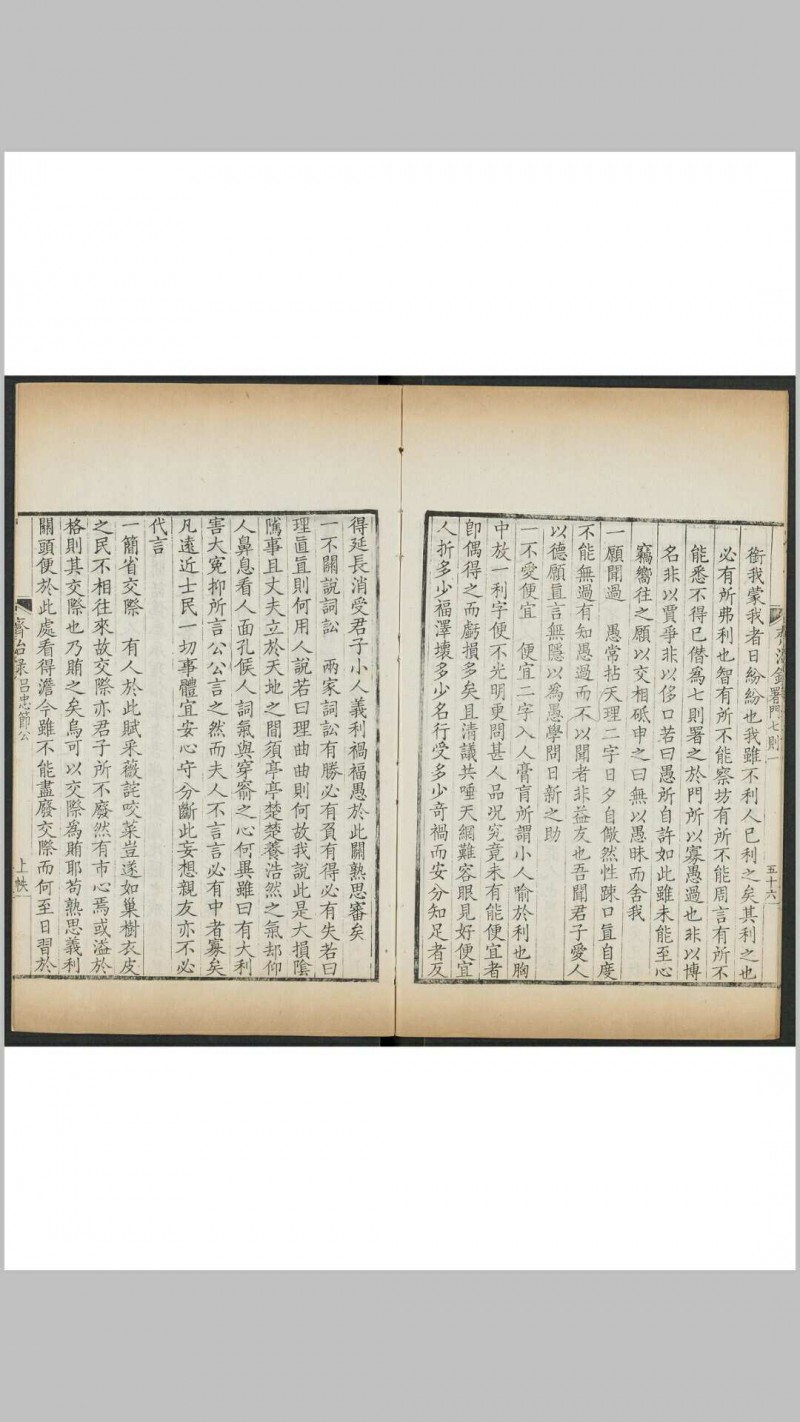 齊治錄署門七則一 五十六
銜我蒙我者日紛紛也我雖不利人已利之矣其利之也
必有所弗利也智有所不能察坊有所不能周言有所不
能悉不得已僭為七則署之於門所以寡愚過也非以博
名非以賈爭非以侈口若曰愚所自許如此雖未能至心
竊嚮往之願以交相砥申之曰無以愚昧而舍我
一願聞過 愚常拈天理二字日夕自儆然性踈口直自度
不能無過有知愚過而不以聞者非益友也吾聞君子愛人
以德願直言無隱以為愚學問日新之助
一不愛便宜 便宜二字入人膏肓所謂小人喻於利也胸
中放一利字便不光明更問甚人品况究竟未有能便宜者
卽偶得之而虧損多矣且清議共唾天網難容眼見好便宜
人折多少福澤壞多少名行受多少奇禍而安分知足者反
得延長消受君子小人義利禍福愚於此關熟思審矣
一不關說詞訟 兩家詞訟有勝必有負有得必有失若曰
理直直則何用人說若曰理曲曲則何故我說此是大損陰
隲事且丈夫立於天地之間須亭亭楚楚養浩然之氣却仰
人鼻息看人面孔候人詞氣與穿窬之心何異雖曰有大利
害大冤抑所言公公言之然而夫人不言言必有中者寡矣
凡遠近士民一切事體宜安心守分斷此妄想親友亦不必
代言
一簡省交際 有人於此賦采薇詫咬菜豈遂如巢樹衣皮
之民不相往來故交際亦君子所不廢然有市心焉或溢於
格則其交際也乃賄之矣烏可以交際為賄耶苟熟思義利
關頭便於此處看得澹今雖不能盡廢交際而何至日習於
齊治錄呂忠節公 上帙